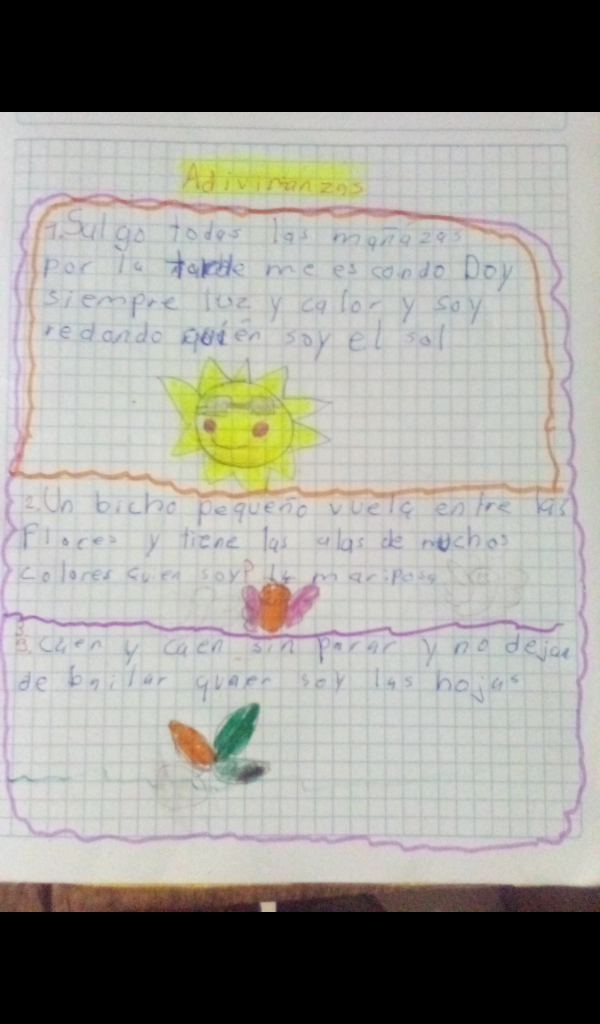 Adivinanzas
1. Salgo todas las mañazas
por la tarde me es condo Doy
siempre luz y calor y soy
redondo quién soy el sol
2. Un bicho pequeño vuela entre las
Flores y tiene las alas de muchos
colores quien soy? la mariposa
3. caen y caen sin parar y no dejan
de bailar quien soy las hojas